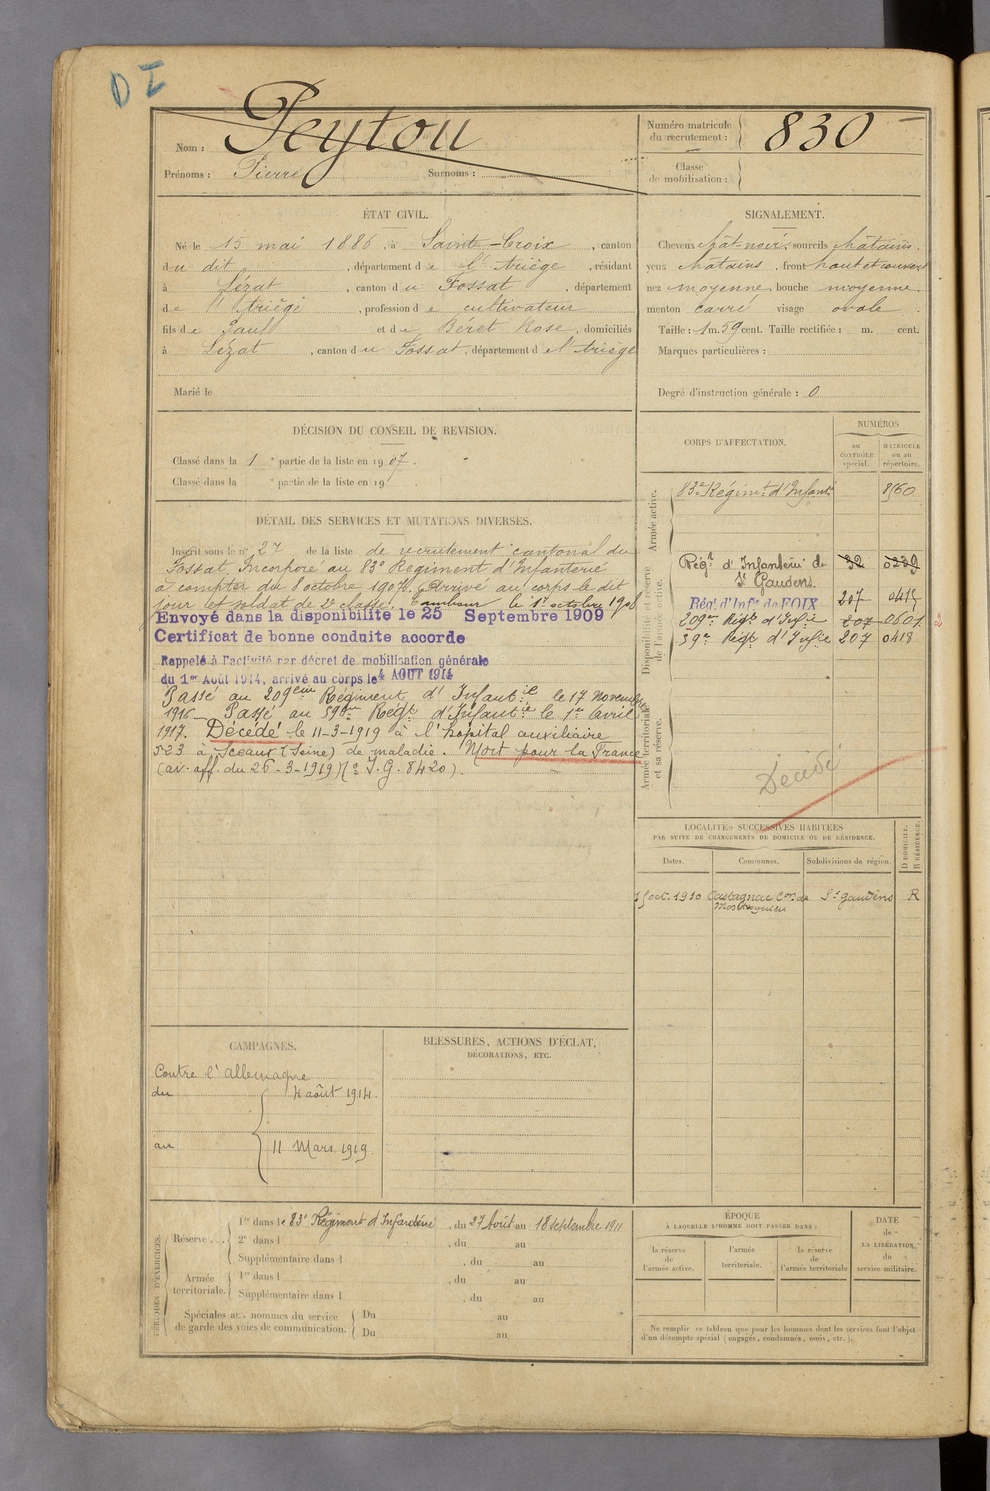 D I
Nom : Peytou
Prénoms : Pierre Surnoms :
Numéro matricule du recrutement : 830
Classe de mobilisation :
ÉTAT CIVIL.
Né le 15 mai 1886, à Sainte-Croix, canton
du dit, département de l'Ariège, résidant
à Lézat, canton du Fossat, département
de l'Ariège, profession de cultivateur
fils de Paul et de Béret Rose, domiciliés
à Lézat, canton du Fossat, département de l'Ariège
Marié le
SIGNALEMENT.
Cheveux chât-noir, sourcils châtains.
yeux châtains, front haut et couvert
nez moyenne, bouche moyenne.
menton carré visage ovale.
Taille : 1 m. 59 cent. Taille rectifiée : m. cent.
Marques particulières :
Degré d'instruction générale : 0
DÉCISION DU CONSEIL DE REVISION.
Classé dans la 1e partie de la liste en 1907.
Classé dans la e partie de la liste en 19
DÉTAIL DES SERVICES ET MUTATIONS DIVERSES.
Inscrit sous le no 27 de la liste de recrutement cantonal du
Fossat. Incorporé au 83e Régiment d'Infanterie
à compter du 8 octobre 1907. Arrivé au corps le dit
jour et soldat de 2e classe. Tambour le 1er octobre 1908
Envoyé dans la disponibilité le 25 Septembre 1909
Certificat de bonne conduite accordé
Rappelé à l'activité par décret de mobilisation générale
du 1er Août 1914, arrivé au corps le 4 AOUT 1914
Passé au 209eme Régiment d'Infantie le 17 novembre
1916 — Passé au 59eme Regt d'Infantie le 1er Avril
1917. Décédé le 11-3-1919 à l'hôpital auxiliaire
523 à Sceaux (Seine) de maladie. Mort pour la France
(av. off. du 26-3-1919)(o S.G. 8420).
CORPS D'AFFECTATION.
NUMÉROS
AU CONTRÔLE spécial.
MATRICULE ou au répertoire.
Armée active.
83e Régimt d'Infant 8560
Disponibilité et réserve de l'armée active.
Régt d'Infanterie de St Gaudens 32 0239
Régt d'Infie de FOIX 207 0415
209me Régt d'Infie 207 0601
59me Regt d'Infie 207 0418
Armée territoriale et sa réserve.
Décédé
LOCALITÉS SUCCESSIVES HABITÉES
PAR SUITE DE CHANGEMENTS DE DOMICILE OU DE RÉSIDENCE.
Dates. Communes. Subdivisions de région. D DOMICILE. R RÉSIDENCE.
15 oct. 1910 Castagnac Con de St Gaudens R
CAMPAGNES.
Contre l'Allemagne
du 4 août 1914.
au 11 Mars 1919.
BLESSURES, ACTIONS D'ÉCLAT,
DÉCORATIONS, ETC.
PÉRIODES D'EXERCICES.
Réserve . . . 1re dans le 83e Régiment d'Infanterie, du 27 Août au 18 septembre 1911
2e dans l , du au
Supplémentaire dans l , du au
Armée territoriale. 1re dans l , du au
Supplémentaire dans l , du au
Spéciales aux hommes du service de garde des voies de communication. Du au
Du au
ÉPOQUE
À LAQUELLE L'HOMME DOIT PASSER DANS :
la réserve de l'armée active.
l'armée territoriale.
la réserve de l'armée territoriale
DATE de LA LIBÉRATION du service militaire.
Ne remplir ce tableau que pour les hommes dont les services font l'objet
d'un décompte spécial (engagés, condamnés, omis, etc.).